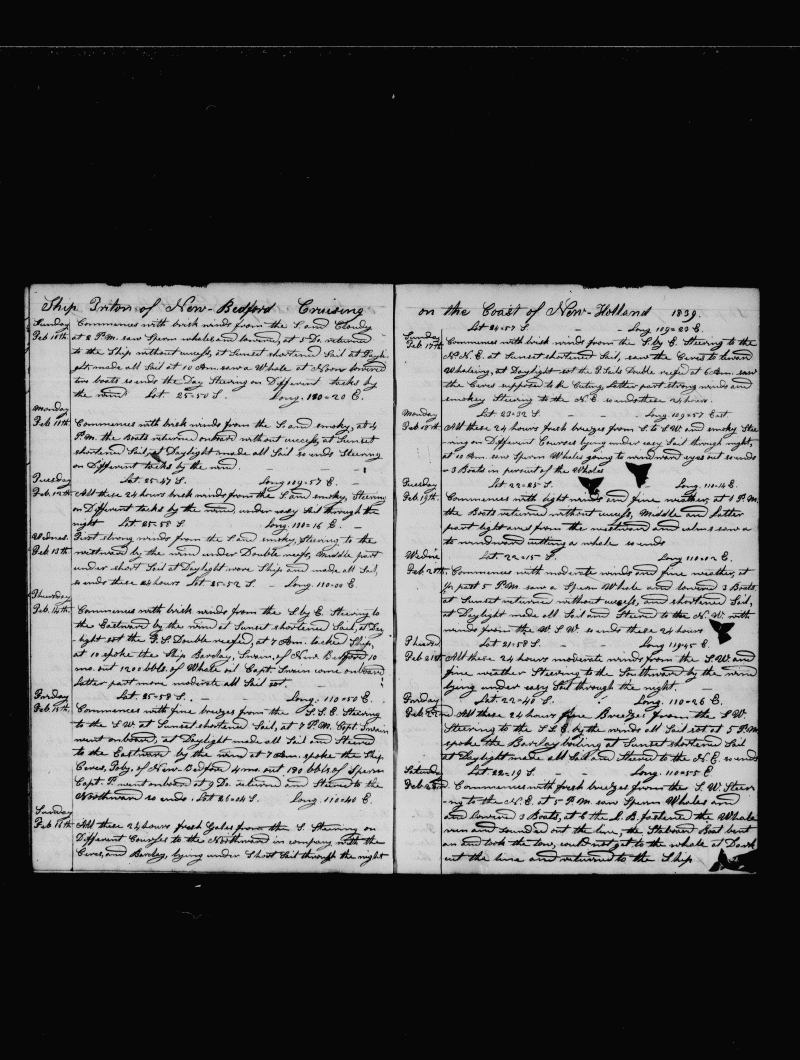 Ship Triton of New Bedford Cruising
Sunday Commences with brisk winds from the S. and Cloudy
Feb 10th at 2 P.M. saw Sperm whales and lowered, at 5 Do. returned
to the Ship without success, at Sunset shortened Sail at Dayli
ght made all Sail at 10 Am. saw a Whale at Noon lowered
two boats so ends the Day Steering on Different tacks by
the wind Lat 25=50 S. Long. 110=20 E.
Monday
Feb 11th Commences with brisk winds from the S. and smoky, at 4
P.M. the Boats returned onboard without success, at Sunset
shortened Sail at Daylight made all Sail so ends Steering
on Different tacks by the wind.
Tuesday Lat 25=47 S. Long 109=57 E. -
Feb. 12th All these 24 hours brisk winds from the S. and smoky, Steering
on Different tacks by the wind, under easy Sail through the
night Lat 25=55 S. Long. 110=16 E. -
Wednes. First strong winds from the S. and smoky, Steering to the
Feb 13th westward by the wind under Double reefs, Middle part
under short Sail at Daylight wore Ship and made all Sail,
so ends these 24 hours Lat 25=52 S. - Long. 110=00 E.
Thursday
Feb. 14th Commences with brisk winds from the S. by E. Steering to
the Eastward by the wind at Sunset shortened Sail, at Day
light set the T. S. Double reefed, at 7 Am. tacked Ship,
at 10 spoke the Ship Barclay, Swain, of New Bedford 10
mo. out 1200 bbls. of Whale oil Capt. Swain came onboard
latter part more moderate all Sail set.
Forday Lat 25=59 S. - Long. 110=50 E.
Feb 15th Commences with fine breezes from the S. S. E. Steering
to the S. W. at Sunset shortened Sail, at 7 P.M. Capt Swain
went onboard, at Daylight made all Sail and Steered
to the Eastward by the wind at 7 Am. spoke the Ship
Ceres, of New Bedford 4 mo. out 130 bbls of Sperm
Capt. P. went onboard at 9 Do. returned and Steered to the
Northward so ends. Lat 26=04 S. Long. 110=40 E.
Sunday
Feb 16th All these 24 hours fresh Gales from the S. Steering on
Different Courses to the Northward in company with the
Ceres, and Barclay, lying under Short Sail through the night
on the Coast of New Holland 1839.
Lat 24=57 S. - - Long 109=23 E.
Sunday Commences with brisk winds from the S. by E. Steering to the
Feb 17th N. N. E. at Sunset shortened Sail, saw the Ceres to leward
Whaleing, at Daylight set the T. Sails Double reefed at 6 Am. saw
the Ceres supposed to be Cuting, latter part strong winds and
smokey Steering to the N. E. so ends these 24 hours.
Monday Lat 23=32 S. - - - Long 109=57 East
Feb 18th All these 24 hours fresh breezes from S. to S. W. and smoky Stee
ring on Different Courses lying under easy Sail through night,
at 10 Am. saw Sperm Whales going to windward eyes out so ends
- 3 Boats in persuit of the Whales
Tuesday Lat 22=25 S. - Long, 110=14 E.
Feb 19th Commences with light winds and fine weather, at 4 P.M.
the Boats returned without success, Middle and latter
part light airs from the westward and calms saw a
to windward cutting a whale so ends
Wedne Lat 22=15 S. Long 110=02 E.
Feb 20th Commences with moderate winds and fine weather, at
1/2 past 5 P.M. saw a Sperm Whale and lowered 3 Boats,
at Sunset returned without success, and shortened Sail,
at Daylight made all Sail and Steered to the N. W. with
winds from the W. S. W. so ends these 24 hours
Thursd Lat 21=58 S. - Long 109=45 E.
Feb 21st All these 24 hours moderate winds from the S. W. and
fine weather Steering to the Southward by the wind
lying under easy Sail through the night. -
Forday Lat 22=40 S. - Long. 110=26 E.
Feb 22nd All these 24 hours fine Breezes from the S. W.
Steering to the S. S. E. by the winds all Sail set at 5 P.M.
spoke the Barclay boiling at Sunset shortened Sail
at Daylight made all Sail and Steered to the N. E. so ends
Saturday Lat 22=19 S. - Long. 110=55 E.
Feb 23d Commences with fresh breezes from the S. W. Steer
-ng to the N. E. at 5 P.M. saw Sperm Whales and
and lowered 3 Boats, at 6 the L. B. fastened the Whale
run and sounded out the line, the Stabord Boat bent
on and took the tow, could not get to the whale at Dark
cut the line and returned to the Ship